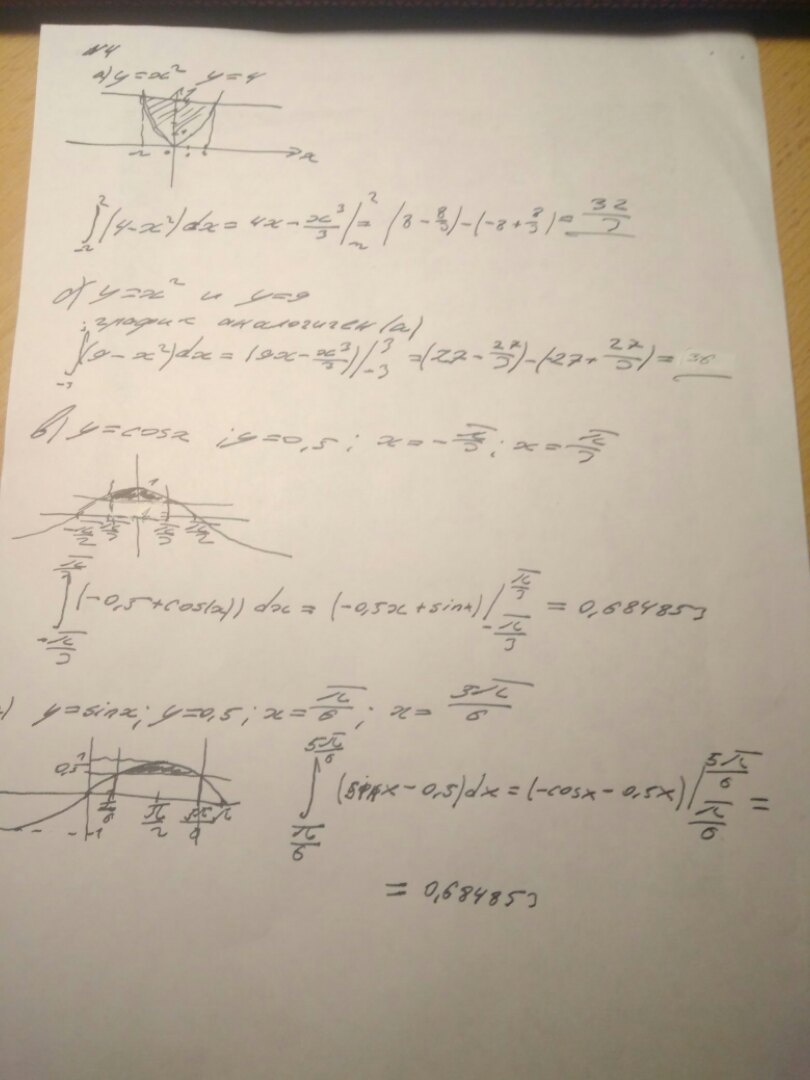 №4
а) y = x² y = 4
-2 0 x
∫₋₂² (4-x²)dx = 4x - x³/3 |₋₂² = (8 - 8/3) - (-8 + 8/3) = 32/3
б) y = x² и y = 9
график аналогичен (а)
∫₋₃³ (9-x²)dx = (9x - x³/3)|₋₃³ = (27 - 27/3) - (-27 + 27/3) = 36
в) y = cosx ; y = 0,5 ; x = -π/3 ; x = π/3
1
-π/2 -π/3 π/3 π/2
∫ (-0,5 + cos(x)) dx = (-0,5x + sinx) | = 0,684853
π/3 -π/3 π/3 -π/3
y = sinx; y = 0,5 ; x = π/6 ; x = 5π/6
1 0,5 π/6 π/2 5π/6 π -1
∫ (sinx - 0,5)dx = (-cosx - 0,5x) | =
5π/6 π/6 5π/6 π/6
= 0,684853